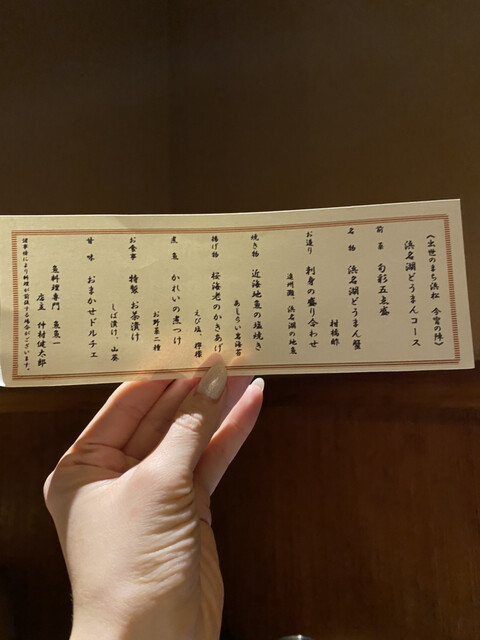 《出世のまち浜松 今宵の陣》
浜名湖どうまんコース
前菜 旬彩五点盛
名物 浜名湖どうまん蟹
柑橘酢
お造り 刺身の盛り合わせ
遠州灘、浜名湖の地魚
焼き物 近海地魚の塩焼き
あしらい 岩海苔
揚げ物 桜海老のかきあげ
えび塩、檸檬
煮魚 かれいの煮つけ
お野菜二種
お食事 特製 お茶漬け
しば漬け、山葵
甘味 おまかせドルチェ
魚料理専門 魚魚一
店主 仲村健太郎
諸事情により料理が前後する場合がございます。